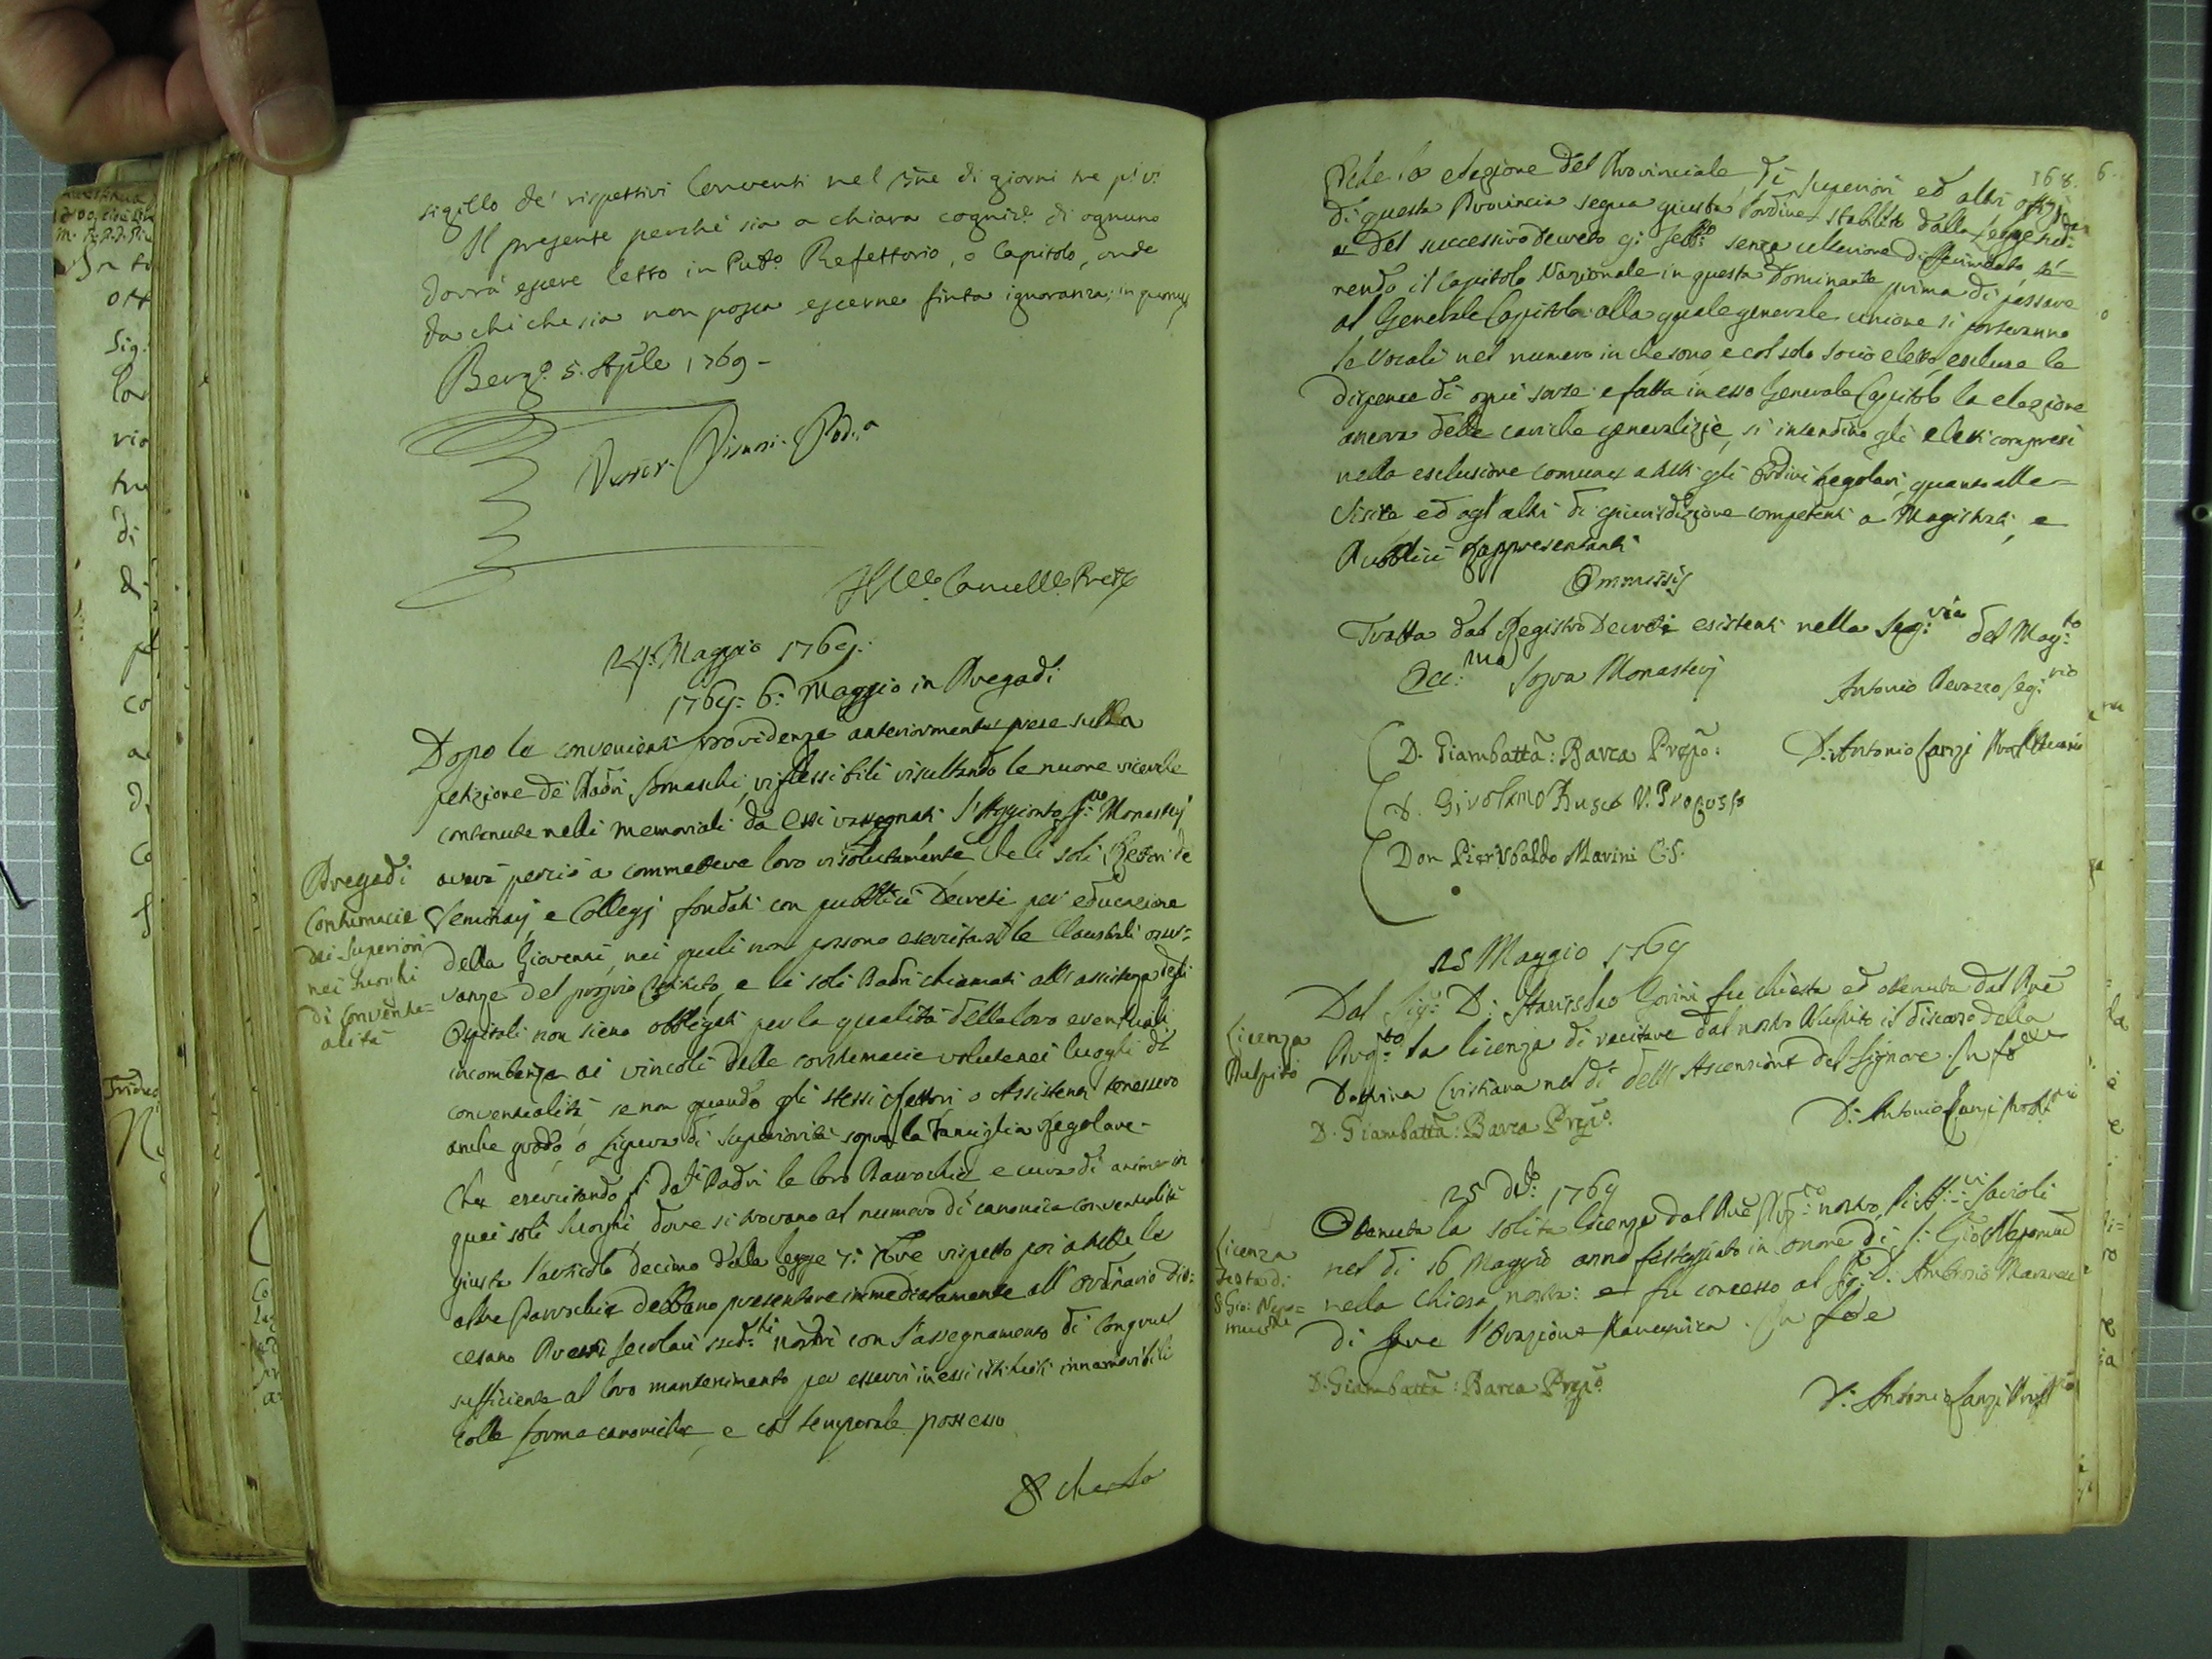 sigillo de' rispettivi Conventi nel di giorni tre
Il presente perchè sia a chiara cogniz.e di ognuno
dovrà essere letto in Refettorio, o Capitolo, onde
da chi che sia non possa esserne finta ignoranza; in quorum
Berg.o 5. Aple 1769 -
24: Maggio 1769:
1769: 6: Maggio in Pregadi
Dopo le convenienti providenze anteriormente prese sulla
petizione de' Padri Somaschi, riflessibili risultando le nuove ricerche
contenute nelli memoriali da essi rassegnati l'Aggionto Monasterj
Pregadi
Contumacie
dei Superiori
nei luoghi
di Conventu=
alità
averà perciò a commettere loro risolutamente, che li soli Rettori de
Seminarj, e Collegj fondati con pubblici Decreti per educazione
della Gioventù, nei quali non possono esercitarsi le Claustrali osser=
vanze del proprio Istituto, e li soli Padri chiamati all'assistenza degli
Ospitali non sieno obbligati per la qualità della loro eventuali
incombenze ai vincoli delle contumacie volute nei luoghi di
conventualità se non quando gli stessi Rettori o Assistenti tenessero
anche grado, o figura di superiorità sopra la Famiglia Regolare -
Che esercitando Padri le loro Parrochie e cura di anime in
quei soli luoghi, dove si trovano al numero di canonica conventualità
giusta l'articolo decimo della legge 7: 7bre rispetto poi a tutte le
altre Parrochie debbano presentare immediatamente all'Ordinario dio=
cesano Preti secolari sud.ti nostri con l'assegnamento di congrua
sufficiente al loro mantenimento per esservi in essi istituiti innamovibili
colle forme canoniche, e col temporale possesso
& che la
168.
Che la elezione del Provinciale, di Superiori ed altri
di questa Provincia segua giusta l'ordine stabilito dalla Legge
e del successivo Decreto senza ulteriore differimento te=
nendo il Capitolo Nazionale in questa Dominante prima di passare
al Generale Capitolo: alla quale generale unione si porteranno
le Vocali nel numero in che sono, e col solo socio eletto, escluse le
dispense di ogni sorte: e fatta in esso Generale Capitolo la elezione
ancora delle cariche generalizie, si intendino gli eletti compresi
nella esclusione comune a tutti gli Ordini Regolari, quanto alle -
Visite ed agl'altri di giurisdizione competenti a Magistrati, e
Pubblici Rappresentanti
Ommissis
Tratta dal Registro Decreti esistenti nella Seg:ria del Mag:to
Ecc:mo Sopra Monasterj
Antonio Seg:rio
D. Giambattã: Barca Prep̃o:
D: Antonio
D. Girolamo Rusca V. Preposto
Don Pier Ubaldo Marini C. S.
25 Maggio 1769
Licenza
Pulpito
Dal Sig.r D: Stanislao fu chiesta ed ottenuta dal
la licenza di recitare dal nostro Pulpito il discorso della
Dottrina Cristiana nel dì dell'Ascensione del Signore. In fede
D. Giambattã: Barca Prep̃o.
D: Antonio
25 dto: 1769
Licenza
Festa di
S. Gio: Nepo=
muceno
Ottenuta la solita licenza dal nostro
nel dì 16 Maggio anno festeggiato in onore di S: Gio: Nepomuc.
nella Chiesa nostra: e fu concesso al Sig: D. Ambrosio
di fare l'Orazione Panegirica. In fede
D. Giambattã: Barca Prep̃o.
D: Antonio